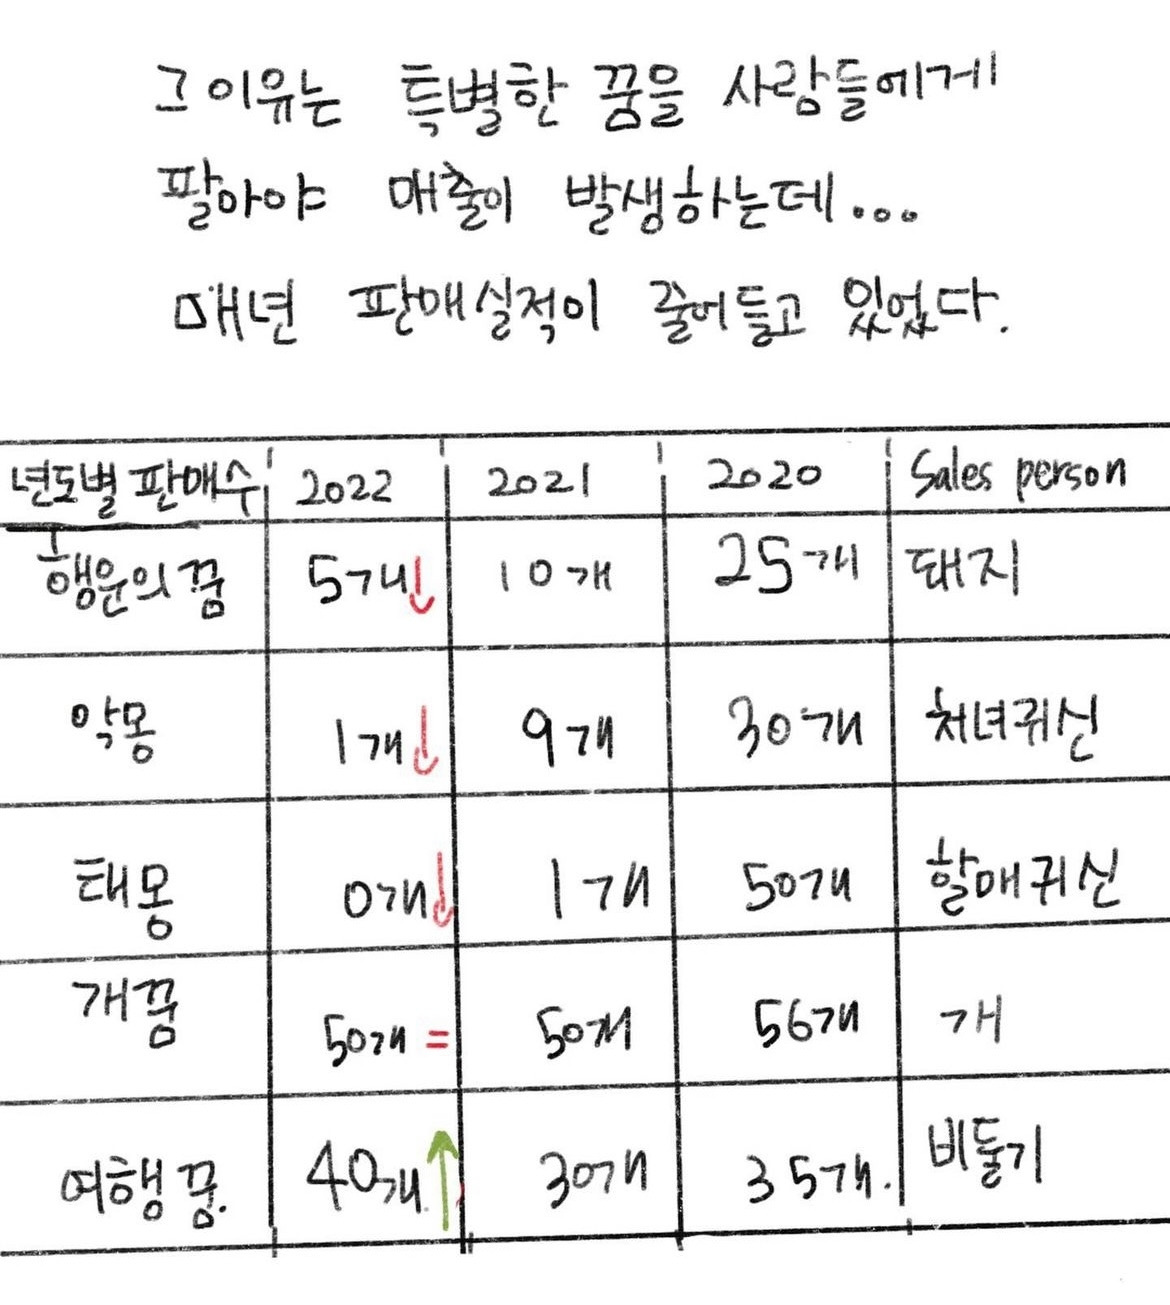 그 이유는 특별한 꿈을 사람들에게
팔아야 매출이 발생하는데...
매년 판매실적이 줄어들고 있었다.
년도별 판매수 2022 2021 2020 Sales person
행운의 꿈 5개↓ 10개 25개 돼지
악몽 1개↓ 9개 30개 처녀귀신
태몽 0개↓ 1개 50개 할매귀신
개꿈 50개 = 50개 56개 개
여행 꿈. 40개↑ 30개 35개. 비둘기